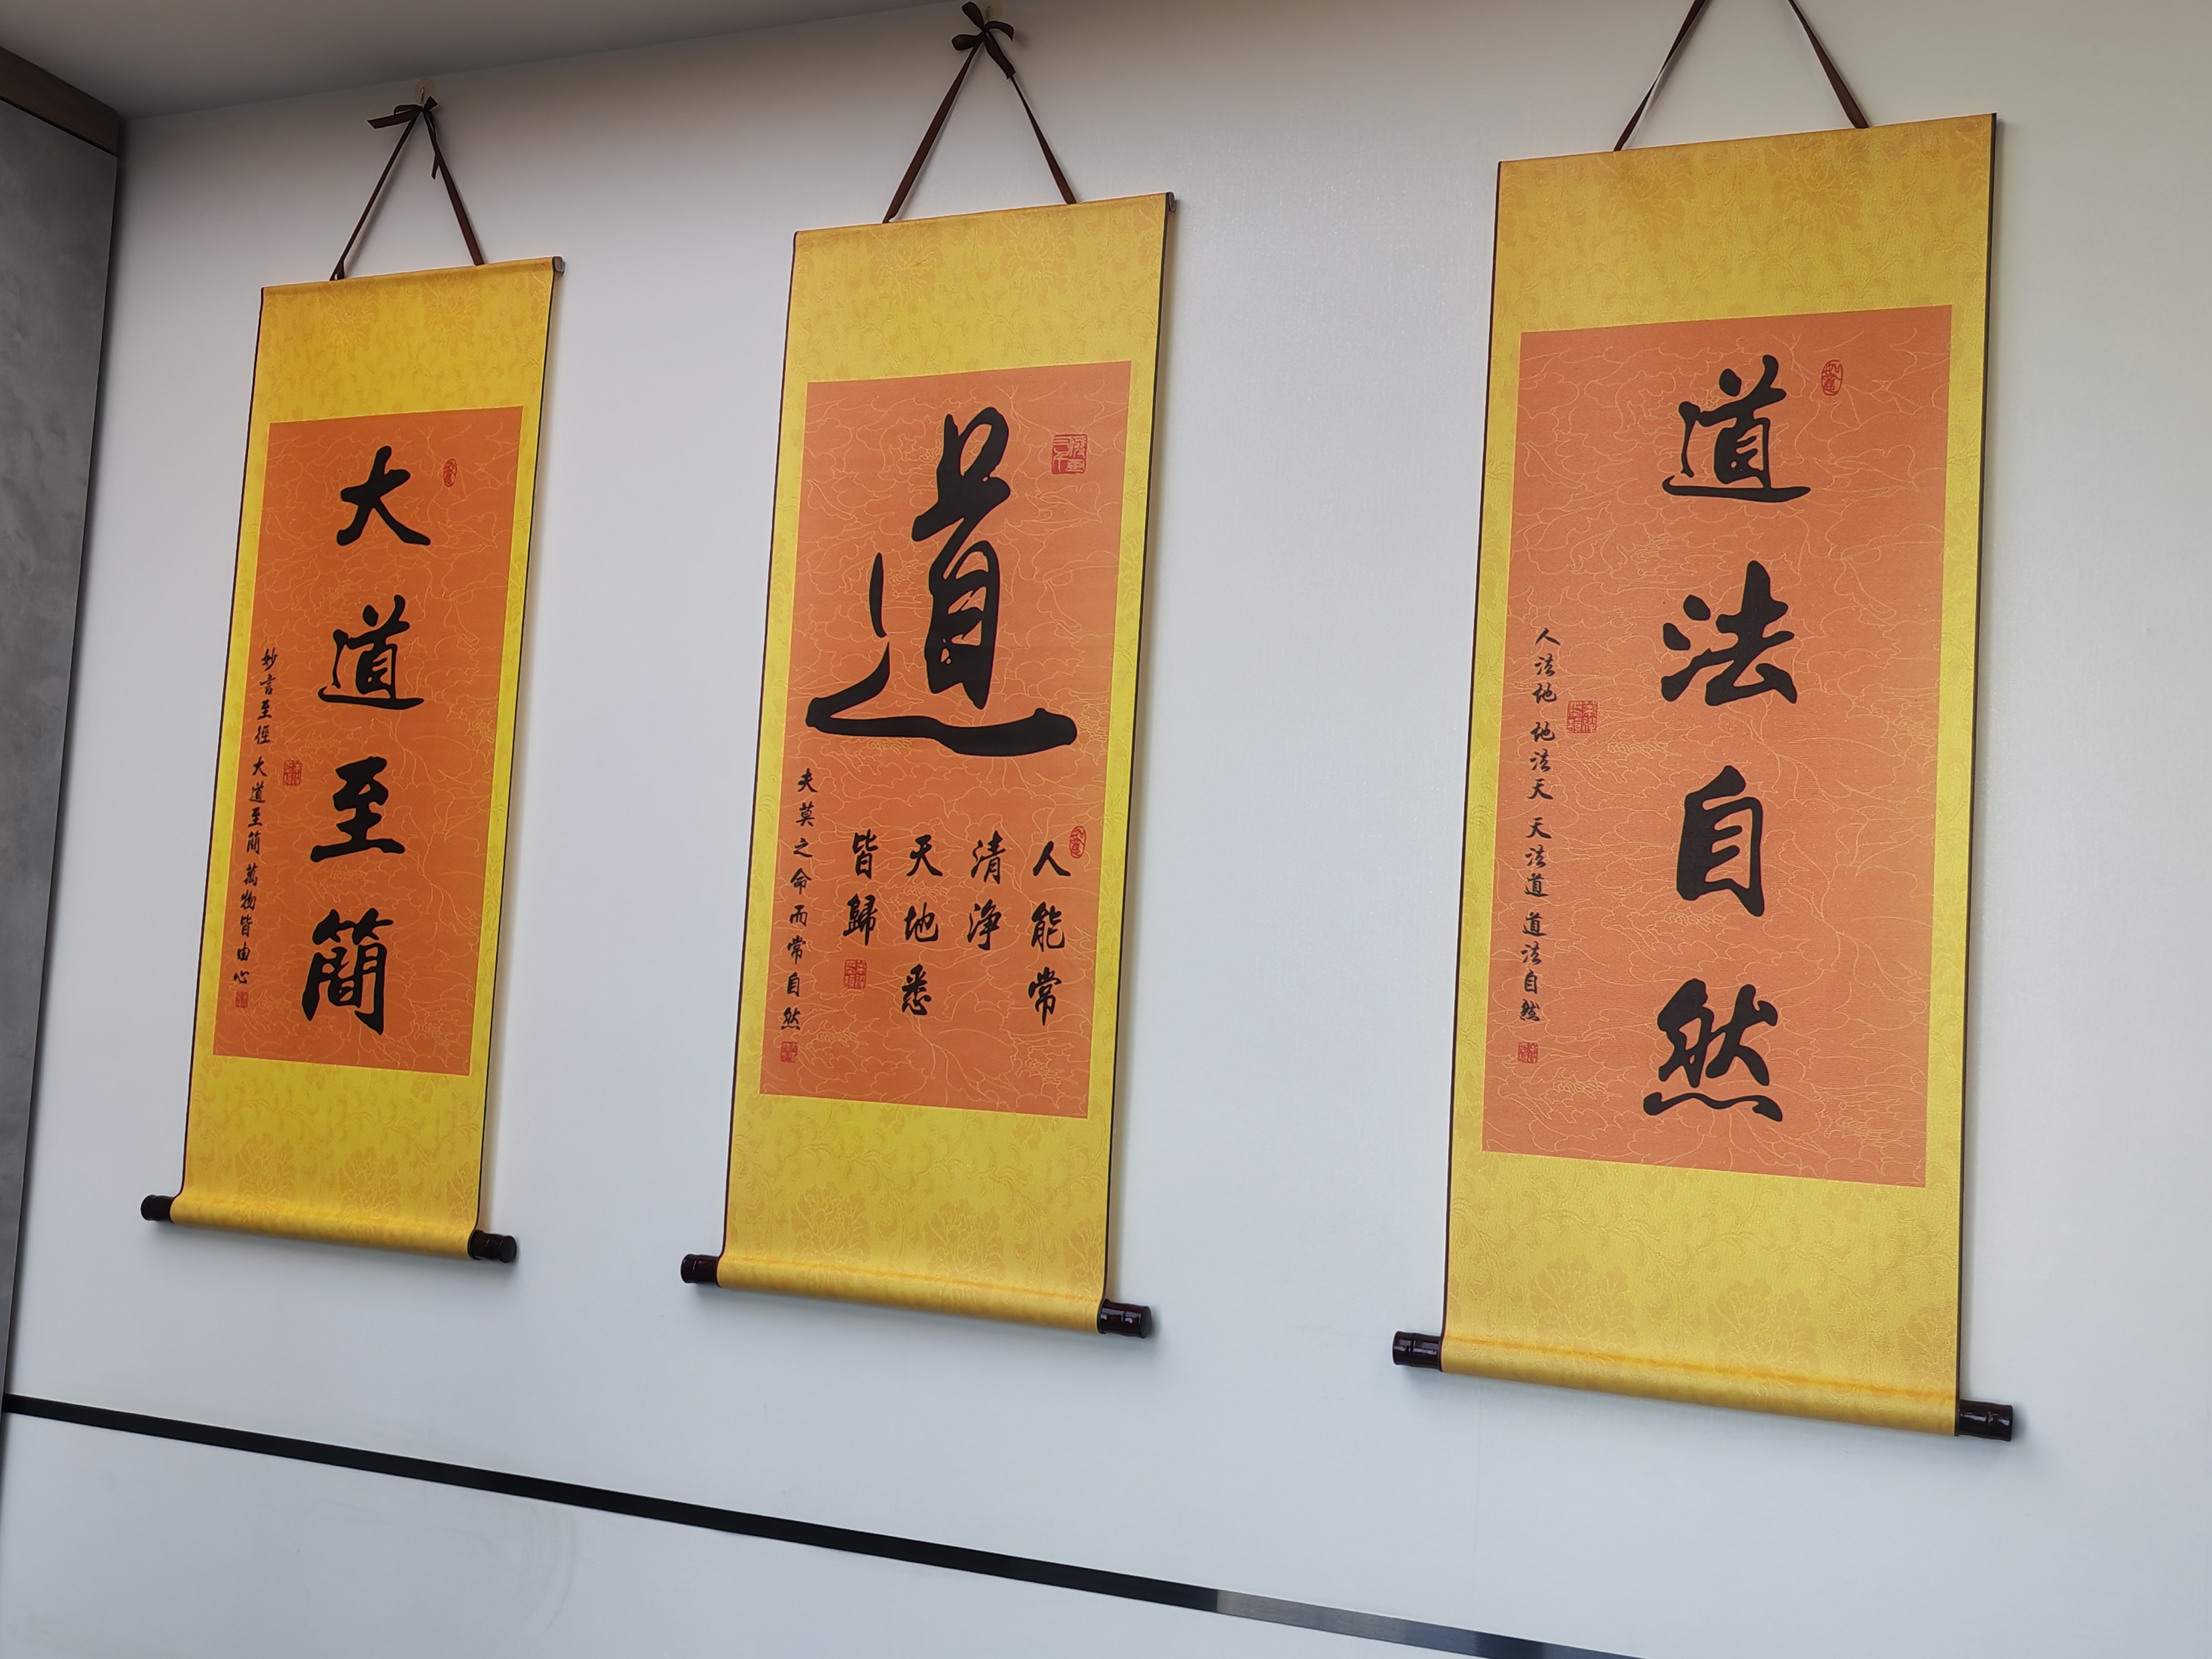 大道至簡
妙言至徑 大道至簡 萬物皆由心
道
人能常
清淨
天地悉
皆歸
夫莫之命而常自然
道法自然
人法地 地法天 天法道 道法自然